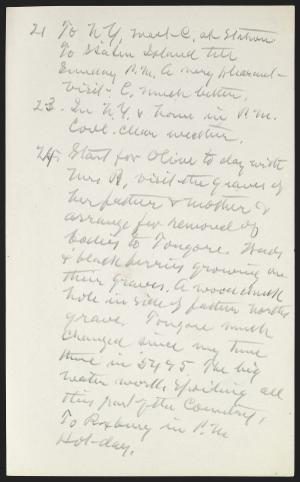 21 To N.Y. meet C. at Station
To Staten Island till
Sunday P.M. A very pleasant
visit - C. much better.
23. In N.Y. & home in P.M.
Cool, clear weather.
24. Start for Olive to day with
Mrs B, visit the graves of
her father & mother &
arrange for removal of
bodies to Tongore. Weeds
& black berries growing on
their graves. A woodchuck
hole in side of father North's
grave. Tongore much
changed since my time
there in '54 & 5. The big
water works spoiling all
this part of the Country.
To Roxbury in P.M.
Hot day.